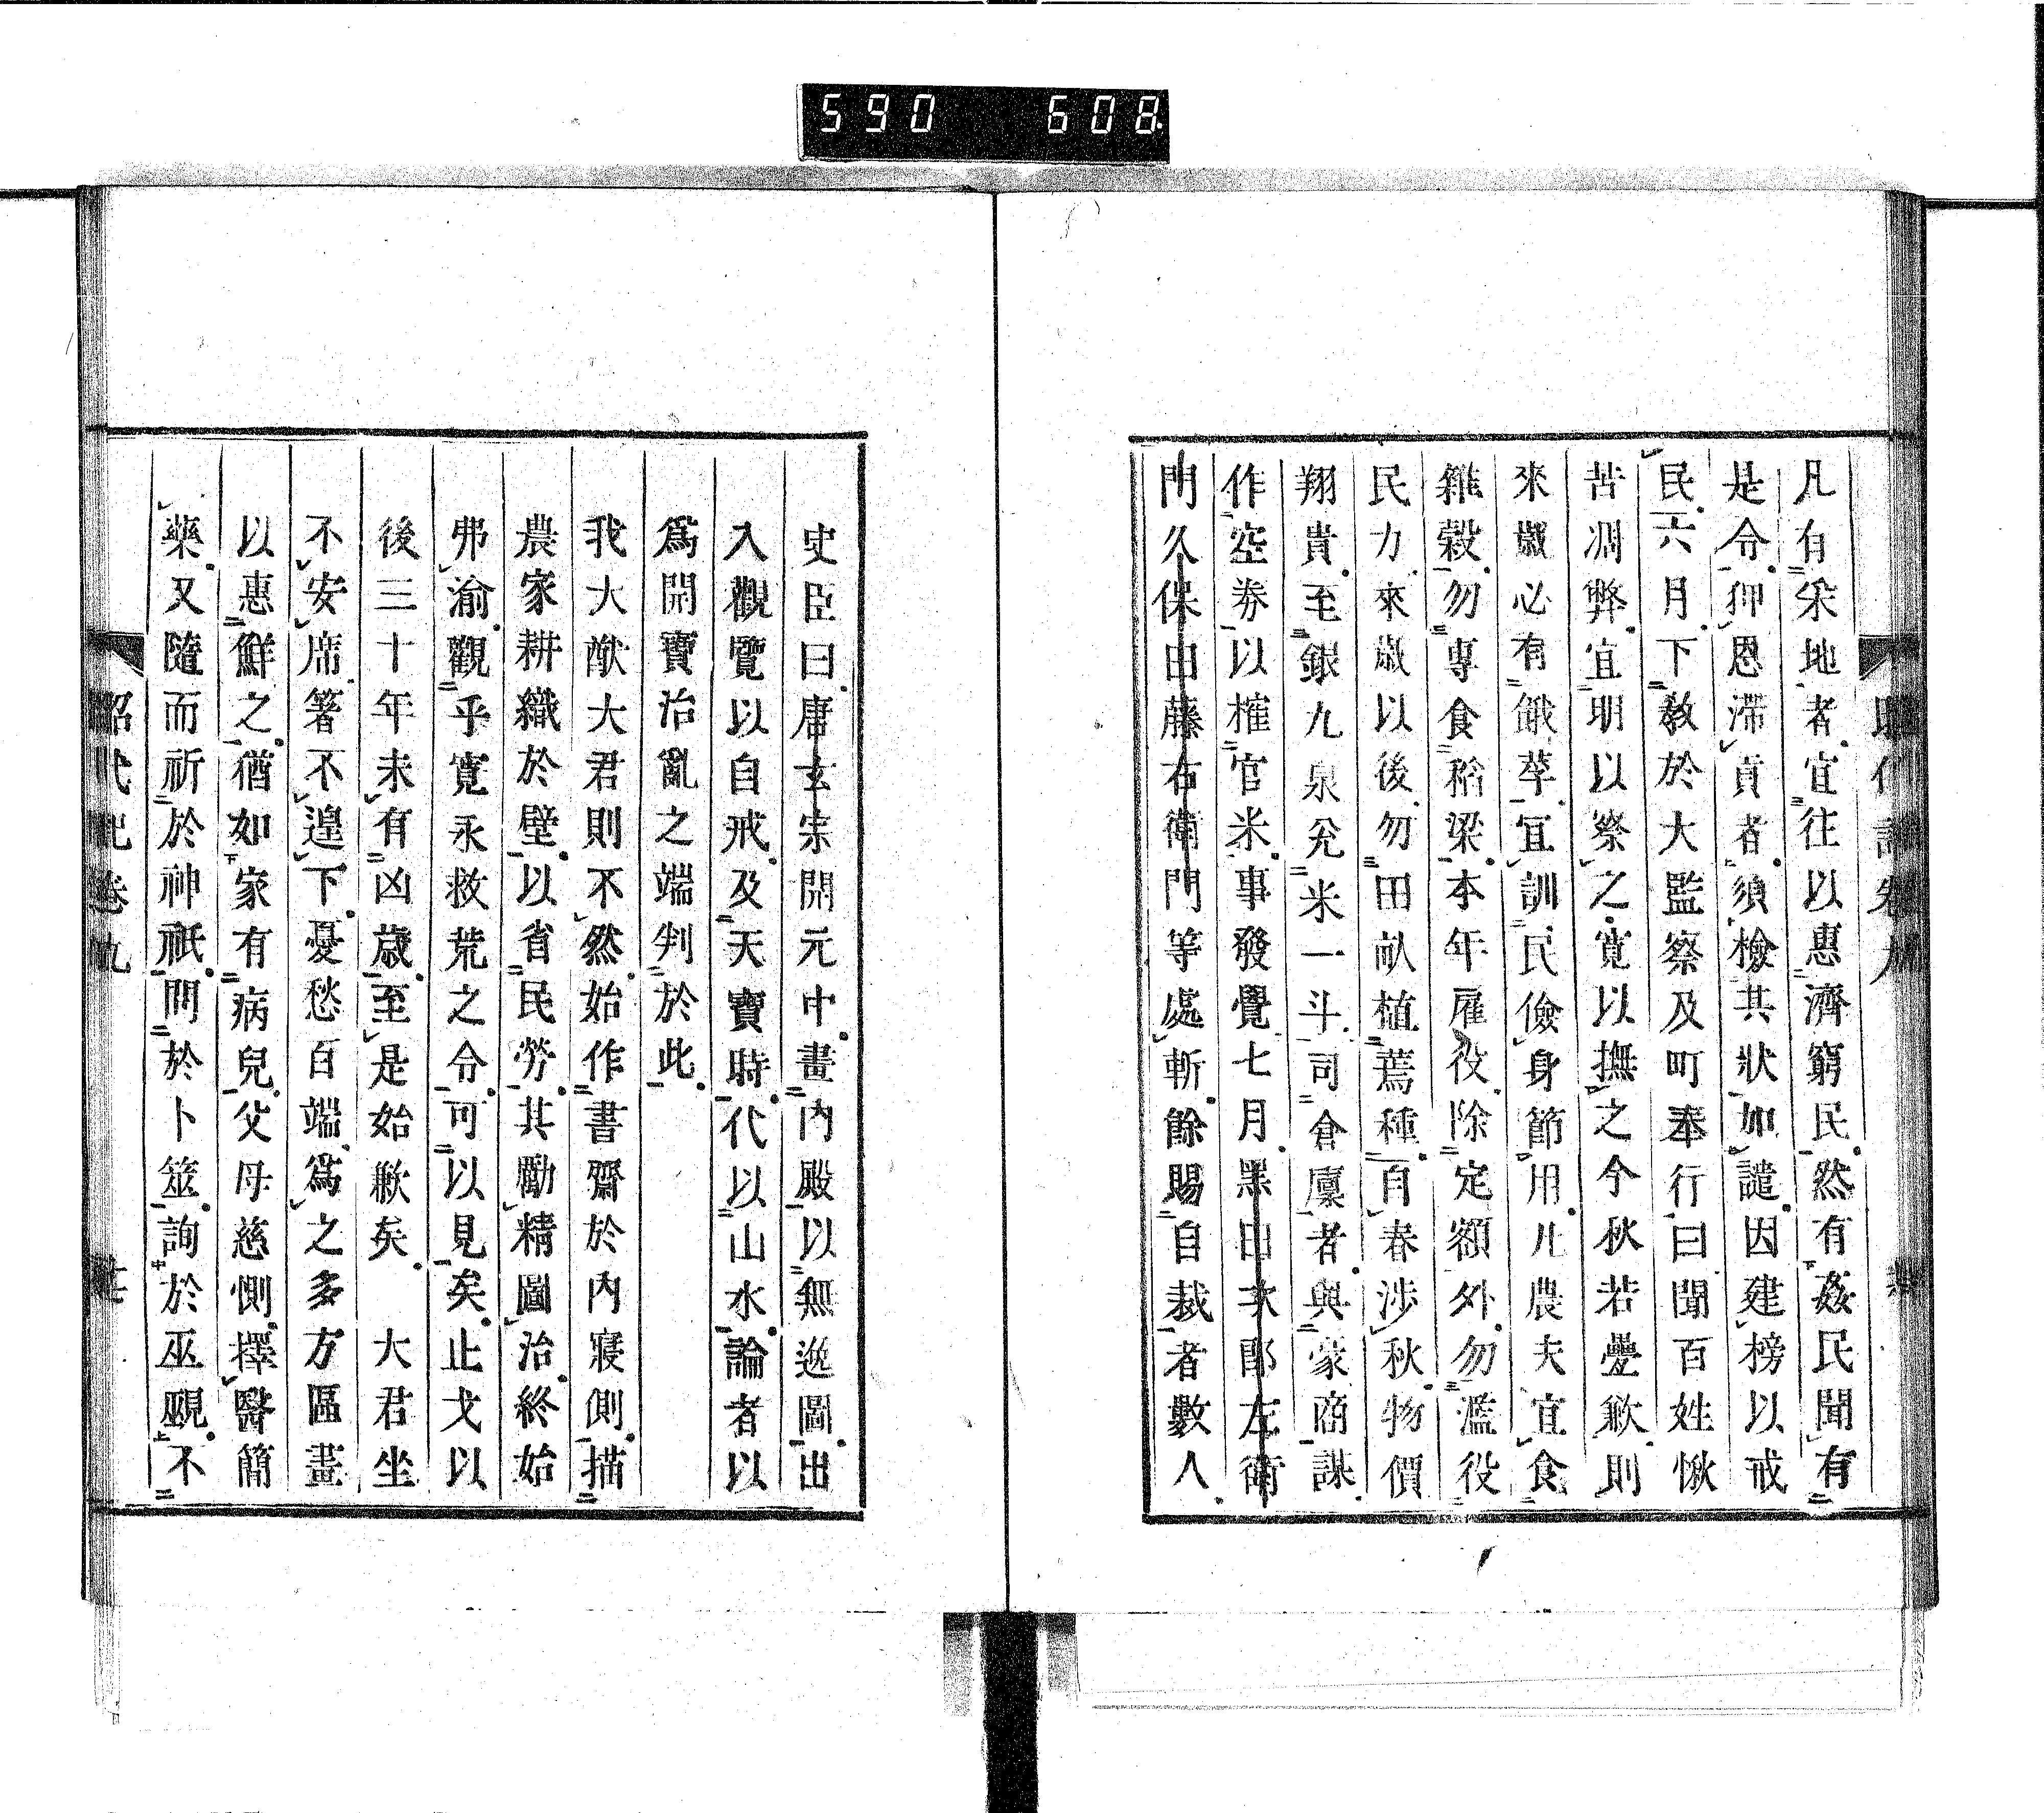 590 608
凡有采地者宜往以惠濟窮民然有姦民聞有
是令仰恩滯貢者須檢其狀如譴因建榜以戒
民六月下教於大監察及町奉行曰聞百姓愀
苦凋弊宜明以察之寛以撫之今秋若疊歉則
來歲必有餓莩宜訓民儉身節用凡農夫宜食
雜穀勿專食稻梁本年雇役除定額外勿濫役
民力來歲以後勿田畝植蔫種自春涉秋物價
翔貴至銀九泉兊米一斗司倉廩者與豪商謀
作空券以榷官米事發覺七月黑田次郎左衛
門久保田藤右衛門等處斬餘賜自裁者數人
史臣曰唐玄宗開元中畫內殿以無逸圖出
入觀覽以自戒及天寶時代以山水論者以
爲開寶治亂之端判於此
我大猷大君則不然始作書齋於內寢側描
農家耕織於壁以省民勞其勵精圖治終始
弗渝觀乎寛永救荒之令可以見矣止戈以
後三十年未有凶歲至是始歉矣 大君坐
不安席箸不遑下憂愁百端爲之多方區畫
以惠鮮之猶如家有病兒父母慈惻擇醫簡
藥又隨而祈於神祇問於卜筮詢於巫覡不
昭代記卷九